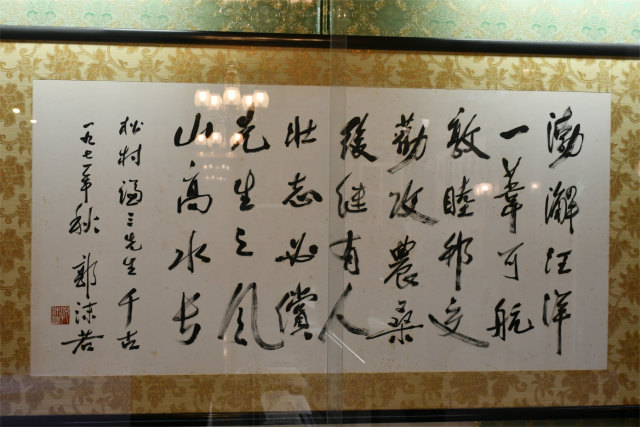 渤澥汪洋
一葦可航
敦睦邦交
勸攻農桑
後継有人
壮志必償
先生之風
山高水长
松村謙三先生千古
一九七一年秋
郭沫若